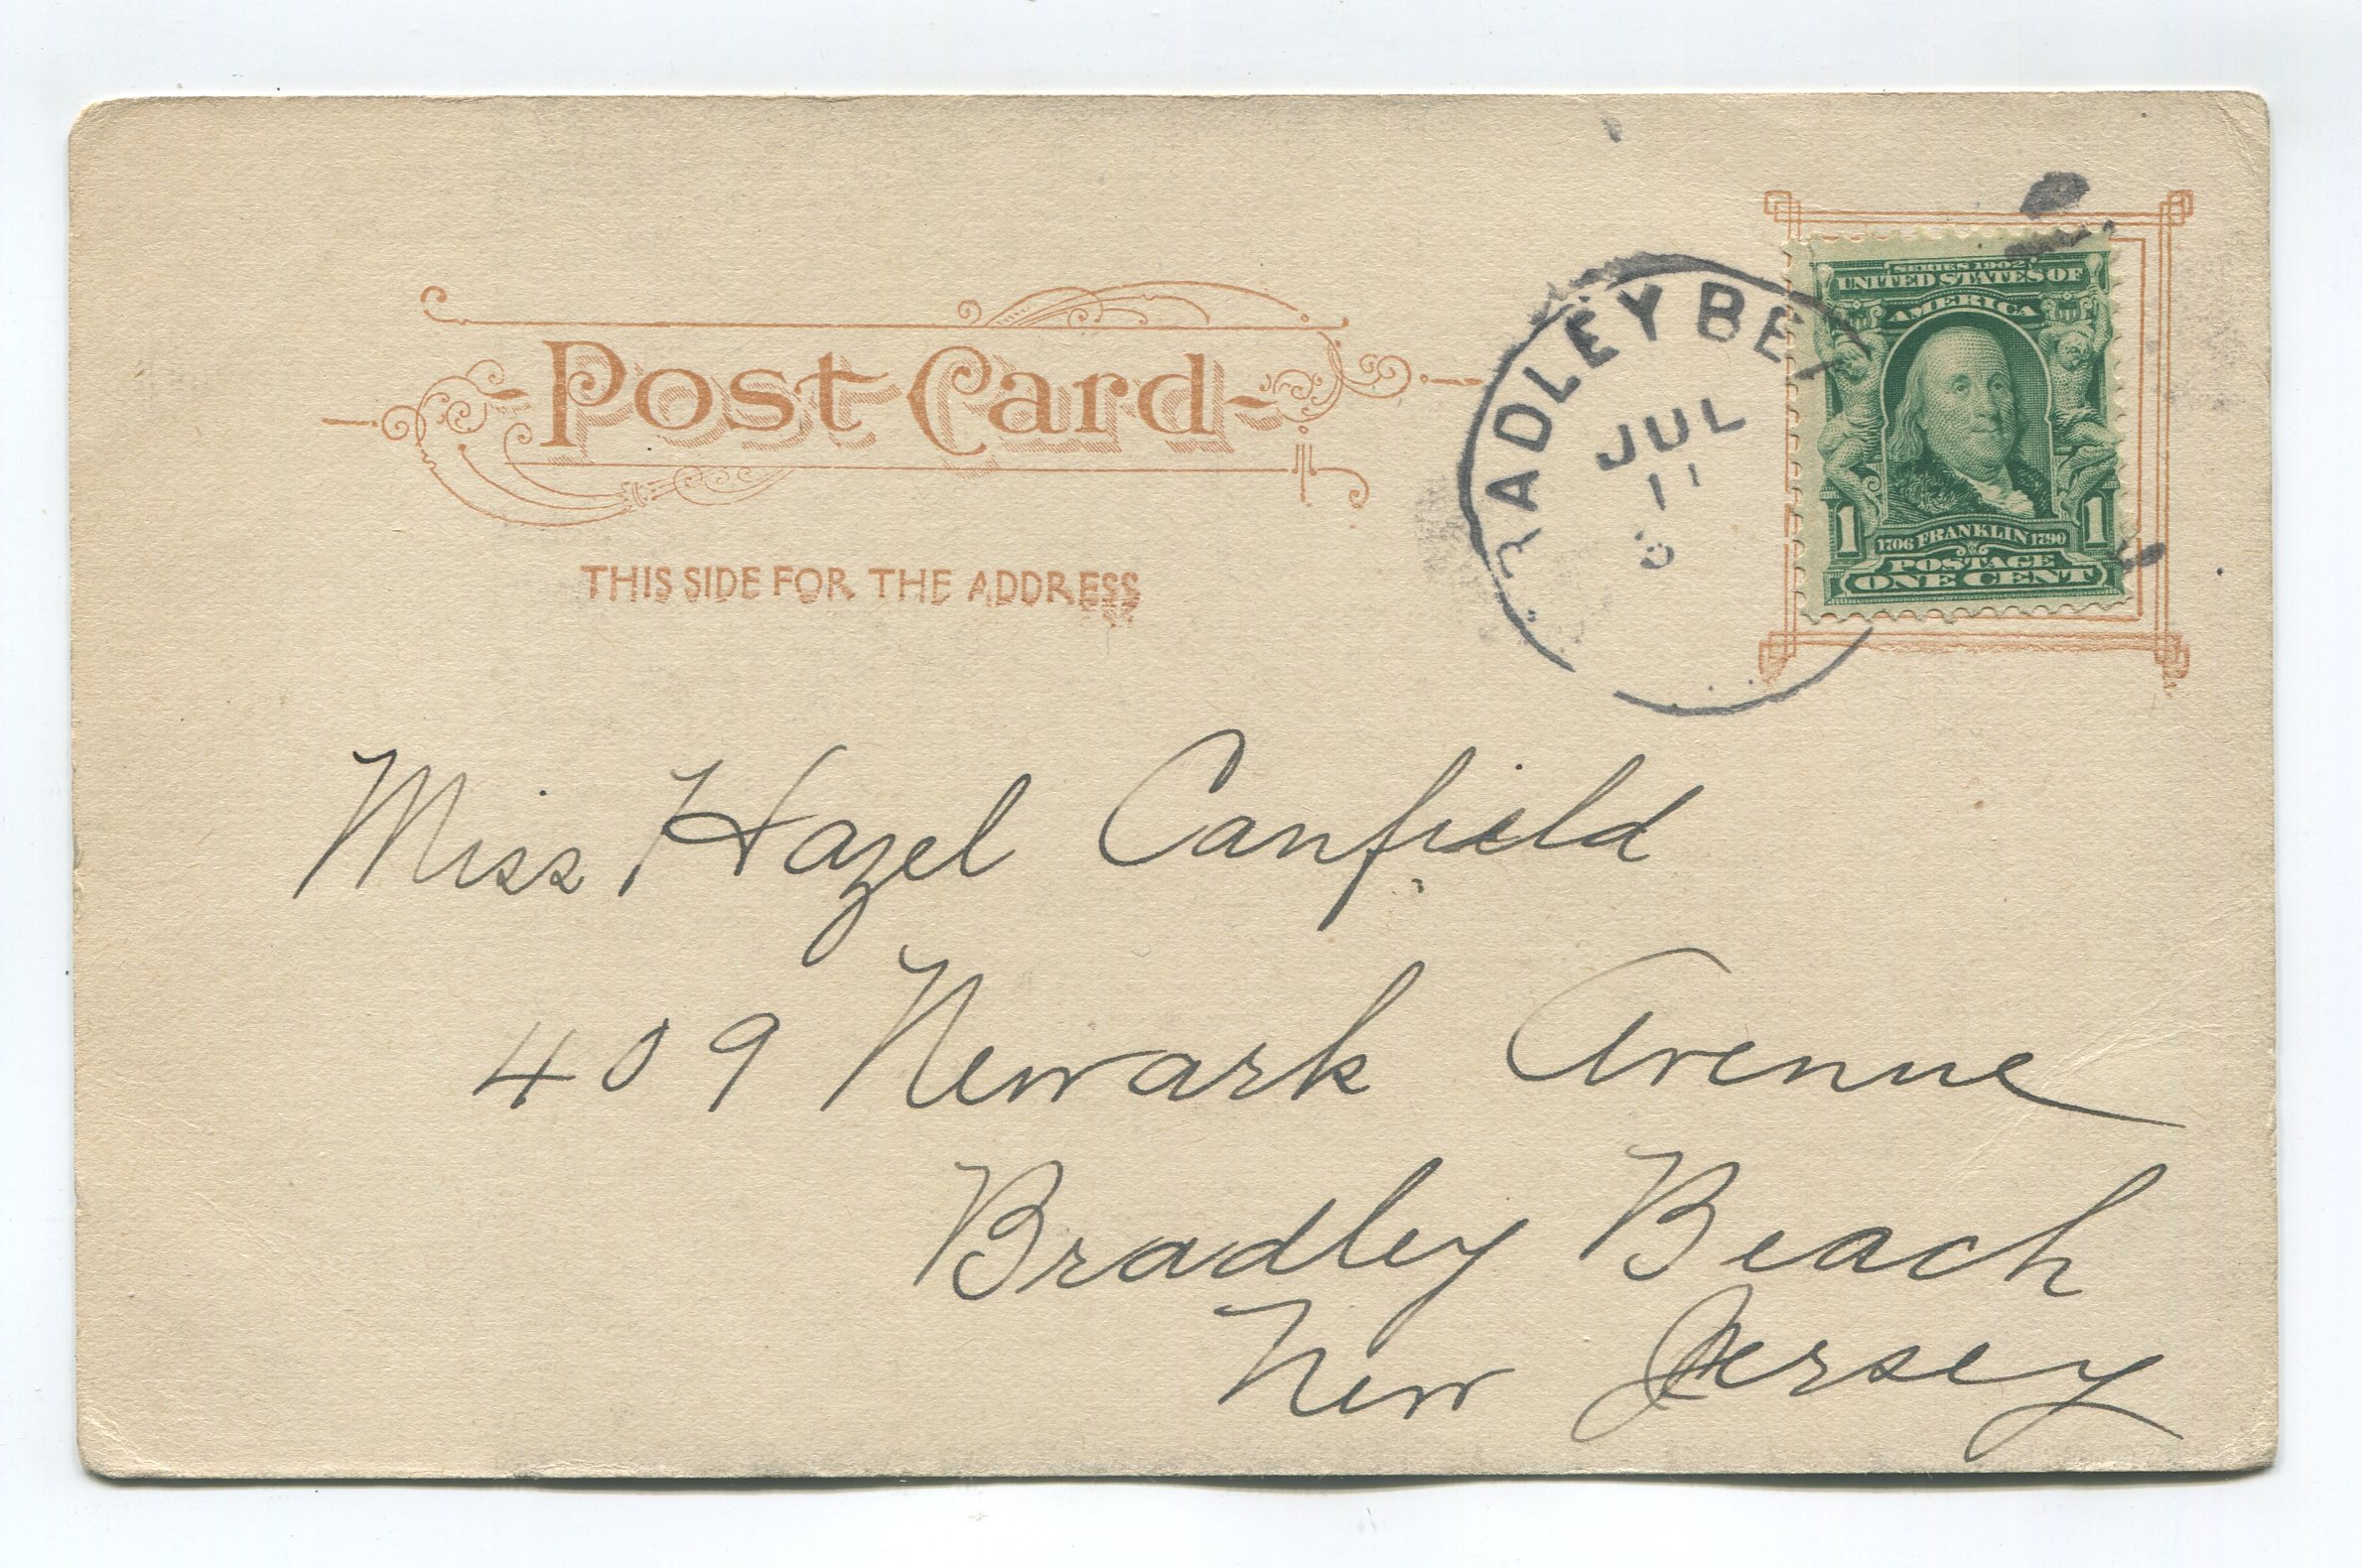 Post Card
THIS SIDE FOR THE ADDRESS
RADLEY BEA
JUL
11
SERIES 1902
UNITED STATES OF
AMERICA
1 1
1706 FRANKLIN 1790
POSTAGE
ONE CENT
Miss Hazel Canfield
409 Newark Avenue
Bradley Beach
New Jersey